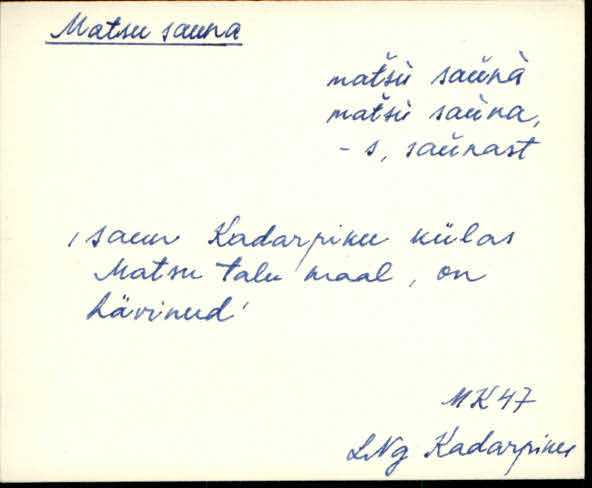 Matsu sauna
matšu sauna
matšu sauna,
- s, saunast
'saun Kadarpiku külas
Matsu talu maal, on
hävinud'
MK 47
LNg Kadarpiku